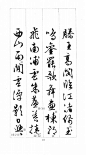 滕王高阁临江渚佩玉
鸣鸾罢歌舞画栋朝
飞南浦云珠帘暮捲
西山雨闲云潭影日悠